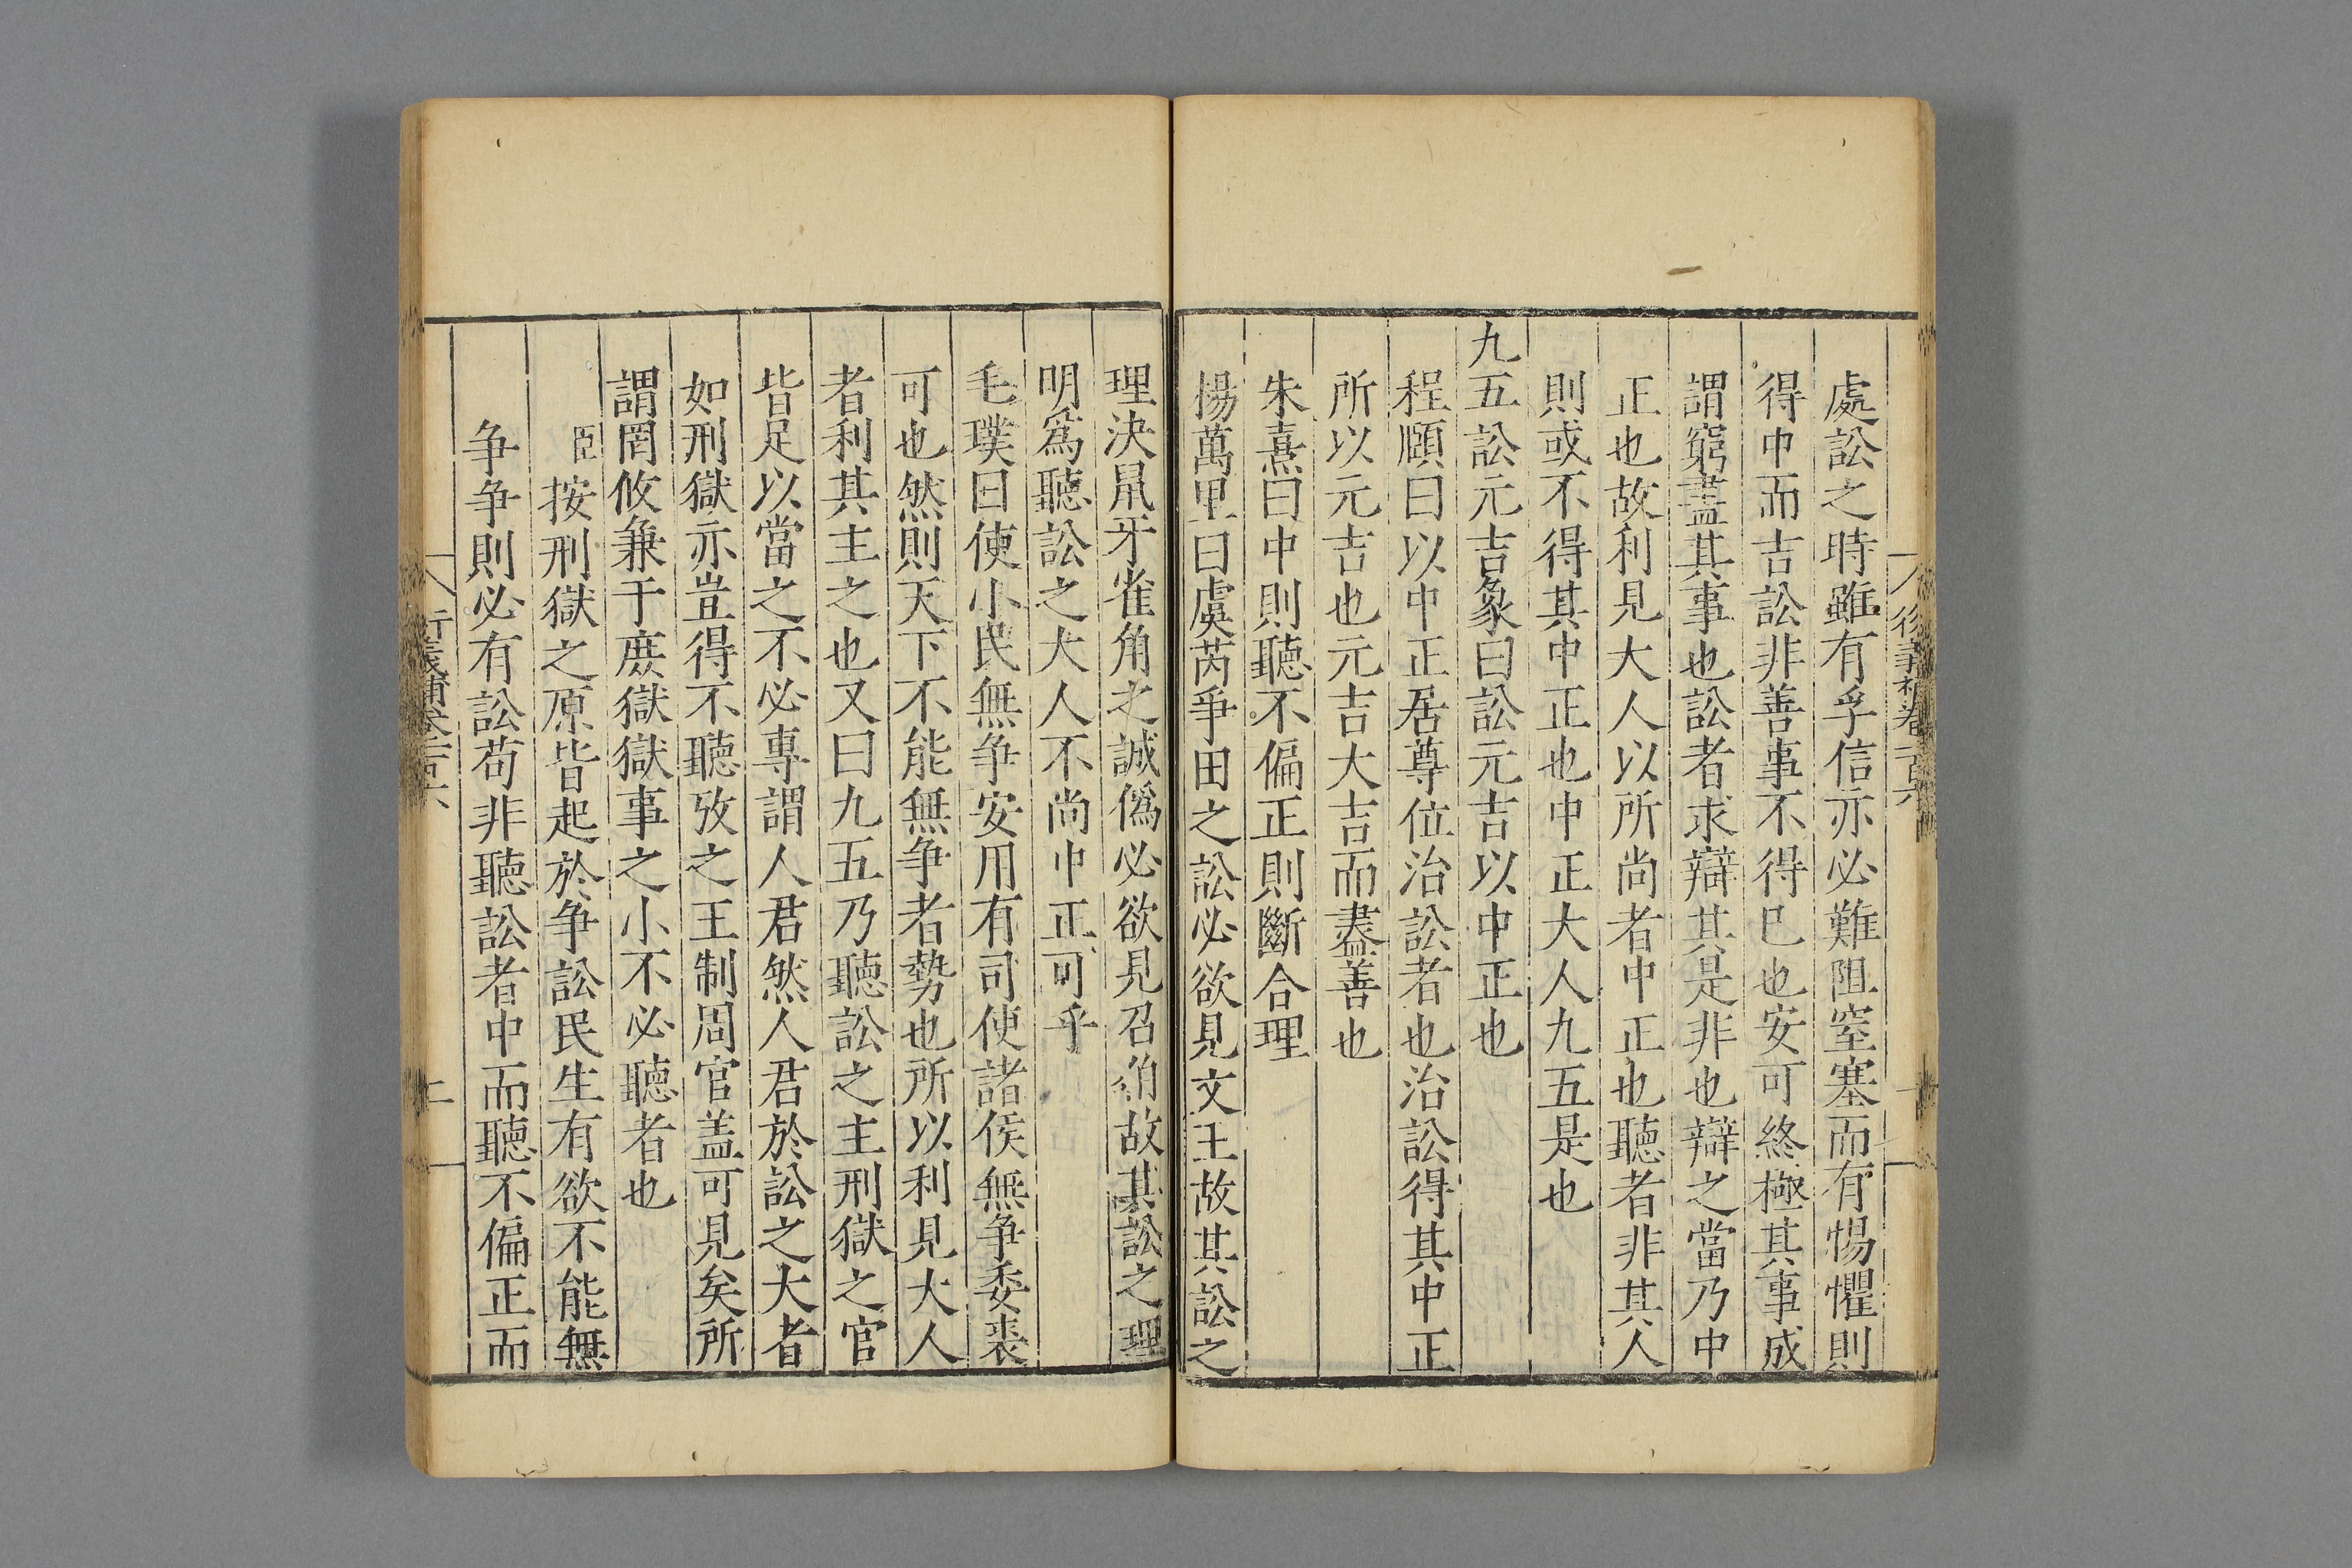 處訟之時雖有孚信亦必難阻窒塞而有惕懼則
得中而吉訟非善事不得已也安可終極其事成
謂窮盡其事也訟者求辯其是非也辯之當乃中
正也故利見大人以所尚者中正也聽者非其人
則或不得其中正也中正大人九五是也
九五訟元吉象曰訟元吉以中正也
程頤曰以中正居尊位治訟者也治訟得其中正
所以元吉也元吉大吉而盡善也
朱熹曰中則聽不偏正則斷合理
楊萬里曰虞芮爭田之訟必欲見文王故其訟之
理決鼠牙雀角之誠僞必欲見召伯故其訟之理
明爲聽訟之大人不尚中正可乎
毛璞曰使小民無爭安用有司使諸侯無爭委裘
可也然則天下不能無爭者勢也所以利見大人
者利其主之也又曰九五乃聽訟之主刑獄之官
皆足以當之不必專謂人君然人君於訟之大者
如刑獄亦豈得不聽攷之王制周官盖可見矣所
謂罔攸兼于庶獄獄事之小不必聽者也
臣按刑獄之原皆起於爭訟民生有欲不能無
爭爭則必有訟苟非聽訟者中而聽不偏正而